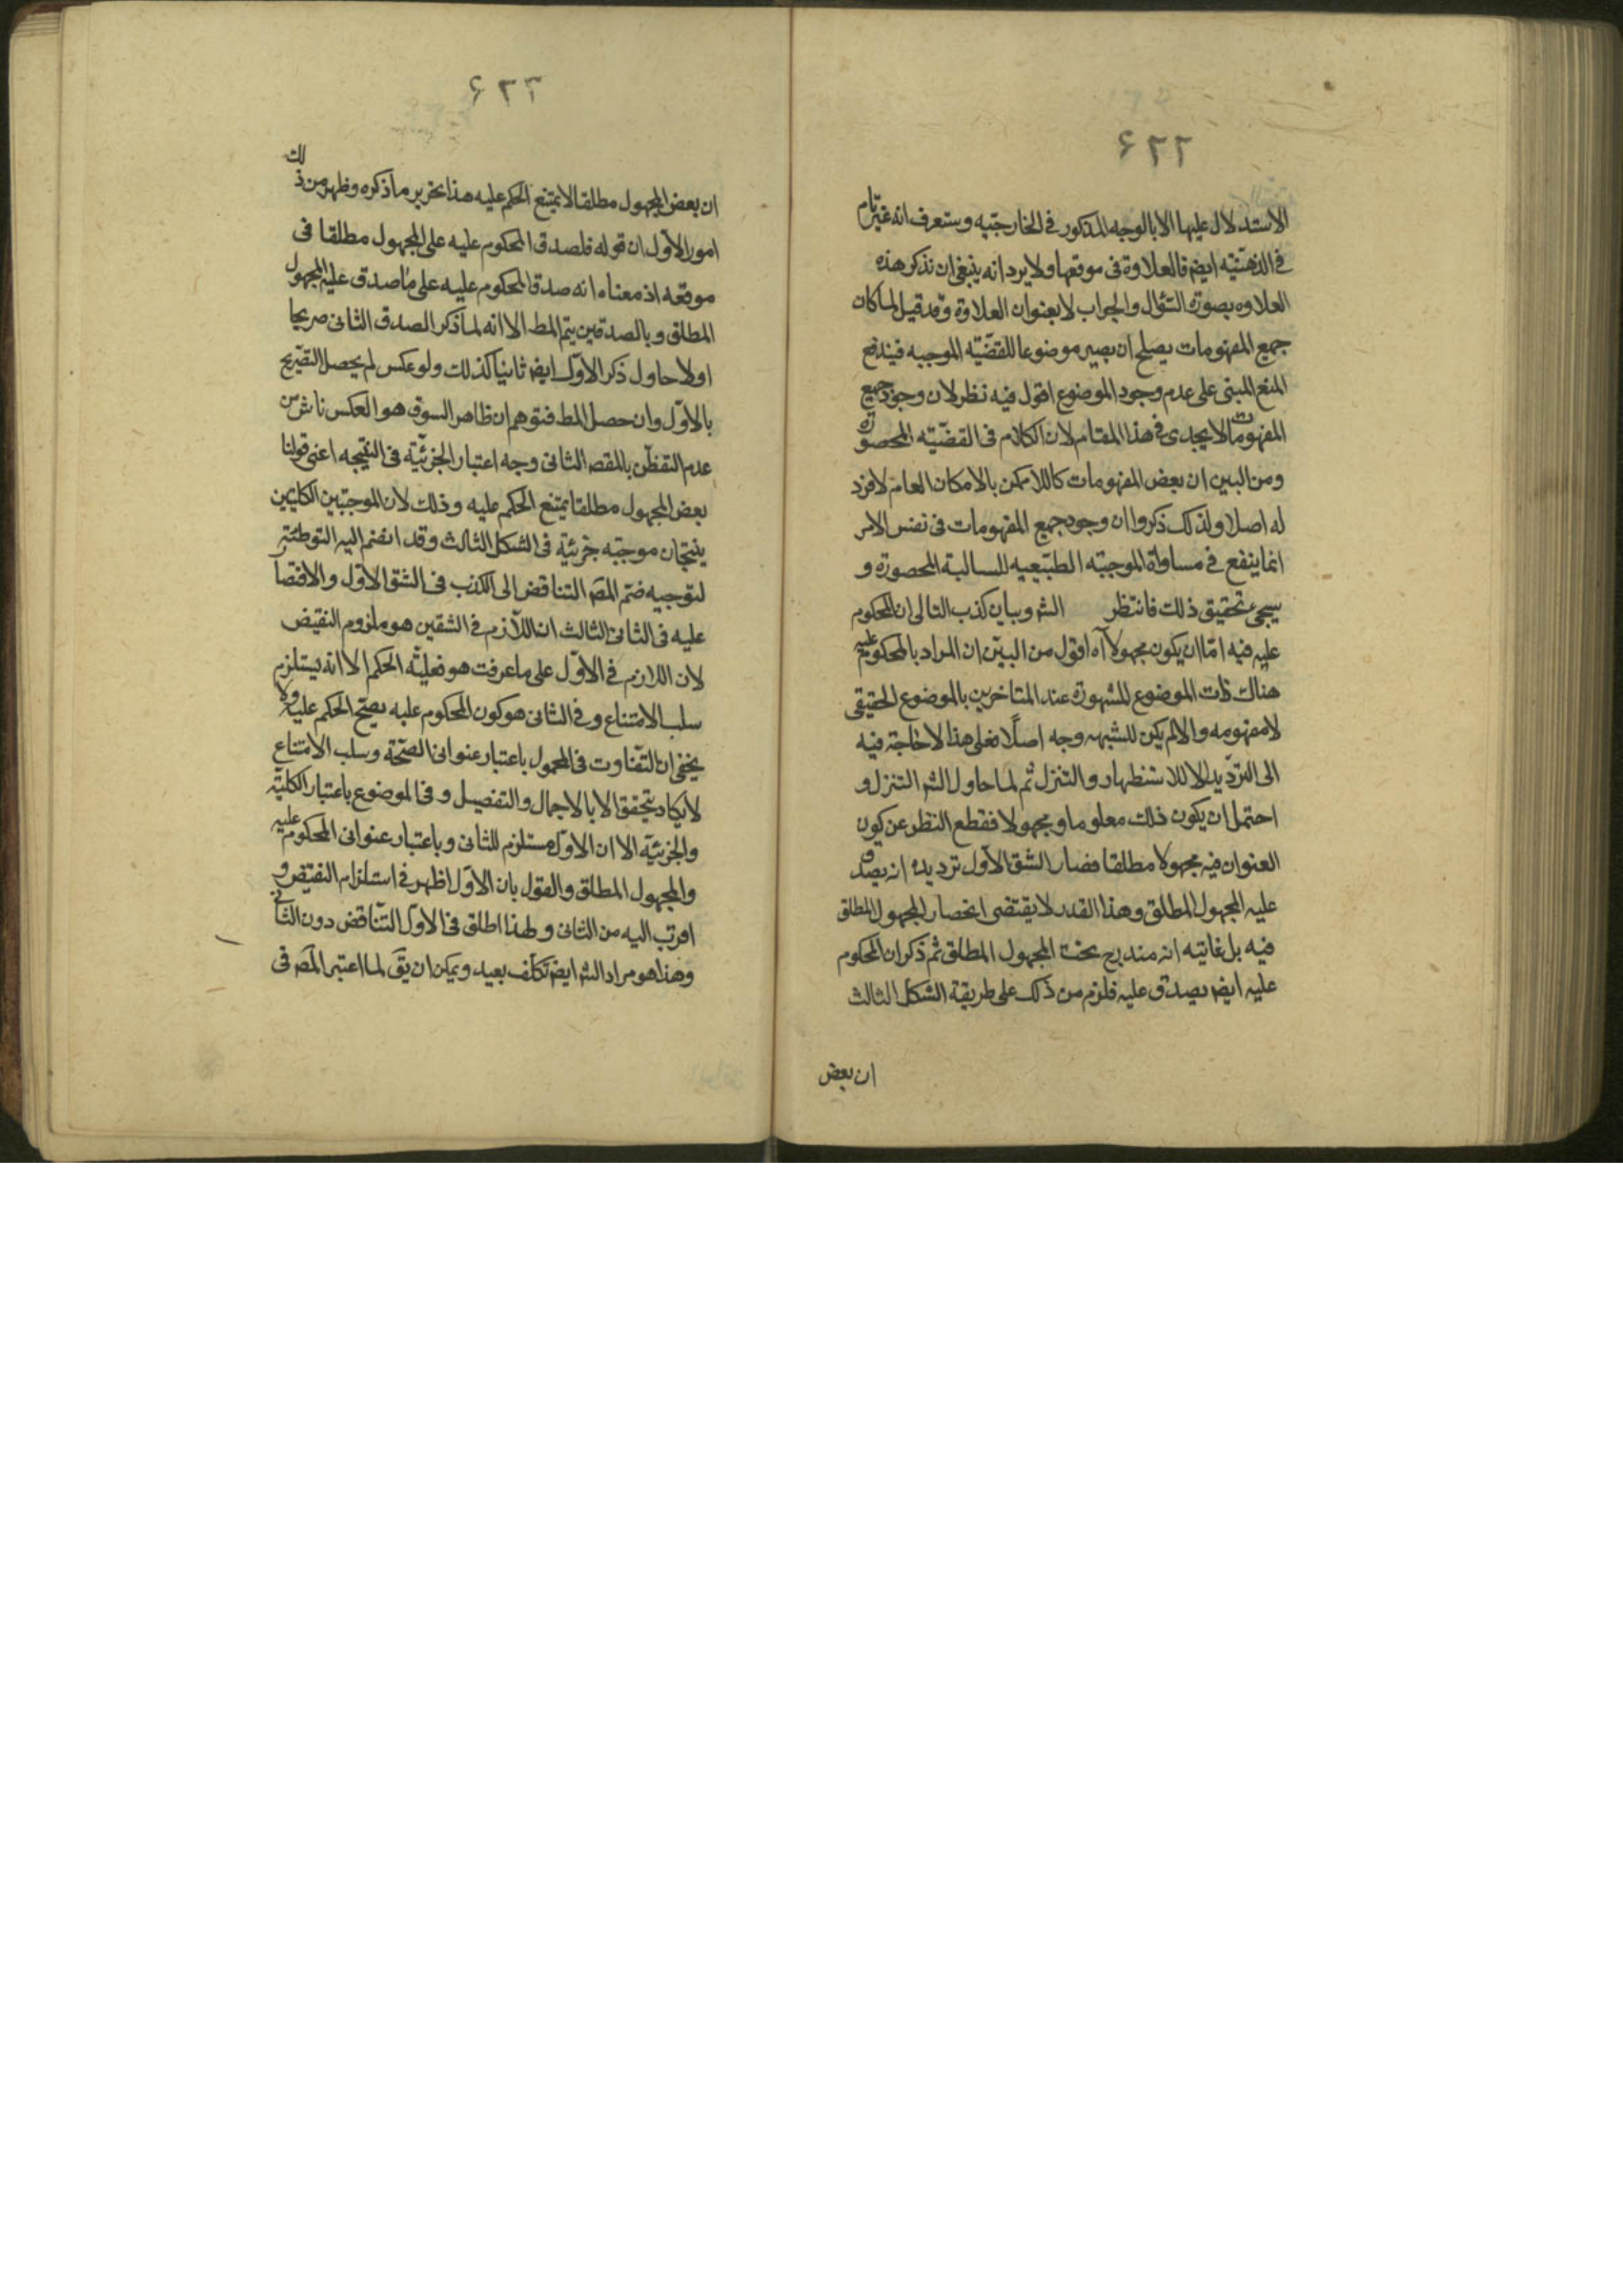 ۶۲۲
الاستدلال عليها الا بالوجه المذكور فى الخارجيه وستعرف انه غير تام
فى الذهنيه ايضا فالعلاوة فى موقعها ولا يرد انه ينبغى ان نذكر هذه
العلاوه بصورة السؤال والجواب لا بعنوان العلاوة وقد قيل لما كان
جميع المفهومات يصلح ان يصير موضوعا للقضيه الموجبه فيندفع
المنع المبنى على عدم وجود الموضوع اقول فيه نظر لان وجود جميع
المفهومات لا يجدى فى هذا المقام لان الكلام فى القضيه المحصورة
ومن البين ان بعض المفهومات كاللاممكن بالامكان العام لا فرد
له اصلا ولذلك ذكروا ان وجود جميع المفهومات فى نفس الامر
انما ينفع فى مساواة الموجبه الطبيعيه للسالبة المحصورة و
سيجئ تحقيق ذلك فانتظر الشر وبيان كذب التالى ان المحكوم
عليه فيه امّا ان يكون مجهولا آه اقول من البيّن ان المراد بالمحكوم عليه
هناك ذات الموضوع المشهورة عند المتاخرين بالموضوع الحقيقى
لا مفهومه والا لم يكن للشبهه وجه اصلًا فعلى هذا لا حاجة فيه
الى الترديد الا للاستظهار والتنزل ثم لما حاول الشر التنزل و
احتمل ان يكون ذلك معلوما ومجهولا فقطع النظر عن كون
العنوان فيه مجهولا مطلقا فصار الشق الاول ترديده انه يصدق
عليه المجهول المطلق وهذا القدر لا يقتضى انحصار المجهول المطلق
فيه بل غايته انه مندرج تحت المجهول المطلق ثم ذكر ان المحكوم
عليه ايضا يصدق عليه فلزم من ذلك على طريقة الشكل الثالث
ان بعض
۶۲۳
ان بعض المجهول مطلقا لا يمتنع الحكم عليه هذا تحرير ما ذكره وظهر من ذلك
امور الاول ان قوله فلصدق المحكوم عليه على المجهول مطلقا فى
موقعه اذ معناه انه صدق المحكوم عليه على ما صدق عليه المجهول
المطلق وبالصدقين يتم المط الا انه لما ذكر الصدق الثانى صريحا
اولا حاول ذكر الاول ايضا ثانيا كذلك ولو عكس لم يحصل التصريح
بالاول وان حصل المط فتوهم ان ظاهر السوق هو العكس ناش من
عدم التفطن بالمقصد الثانى وجه اعتبار الجزئيّة فى النتيجه اعنى قولنا
بعض المجهول مطلقا يمتنع الحكم عليه وذلك لان الموجبتين الكليتين
ينتجان موجبه جزئية فى الشكل الثالث وقد انضم اليه التوطئة
لتوجيه ضم المص التناقض الى الكذب فى الشق الاول والاقتصار
عليه فى الثانى الثالث ان اللازم فى الشقين هو ملزوم النقيض
لان اللازم فى الاول على ما عرفت هو فعليّه الحكم الا انه يستلزم
سلب الامتناع وفى الثانى هو كون المحكوم عليه يصح الحكم عليه ولا
يخفى ان التفاوت فى المحمول باعتبار عنوانى الصحة وسلب الامتناع
لا يكاد يتحقق الا بالاجمال والتفصيل وفى الموضوع باعتبار الكلية
والجزئيّة الا ان الاول مستلزم للثانى وباعتبار عنوانى المحكوم عليه
والمجهول المطلق والقول بان الاول اظهر فى استلزام النقيض و
اقرب اليه من الثانى ولهذا اطلق فى الاول التناقض دون الثانى
وهذا هو مراد الشر ايضا تكلف بعيد ويمكن ان يق لما اعتبر المص فى